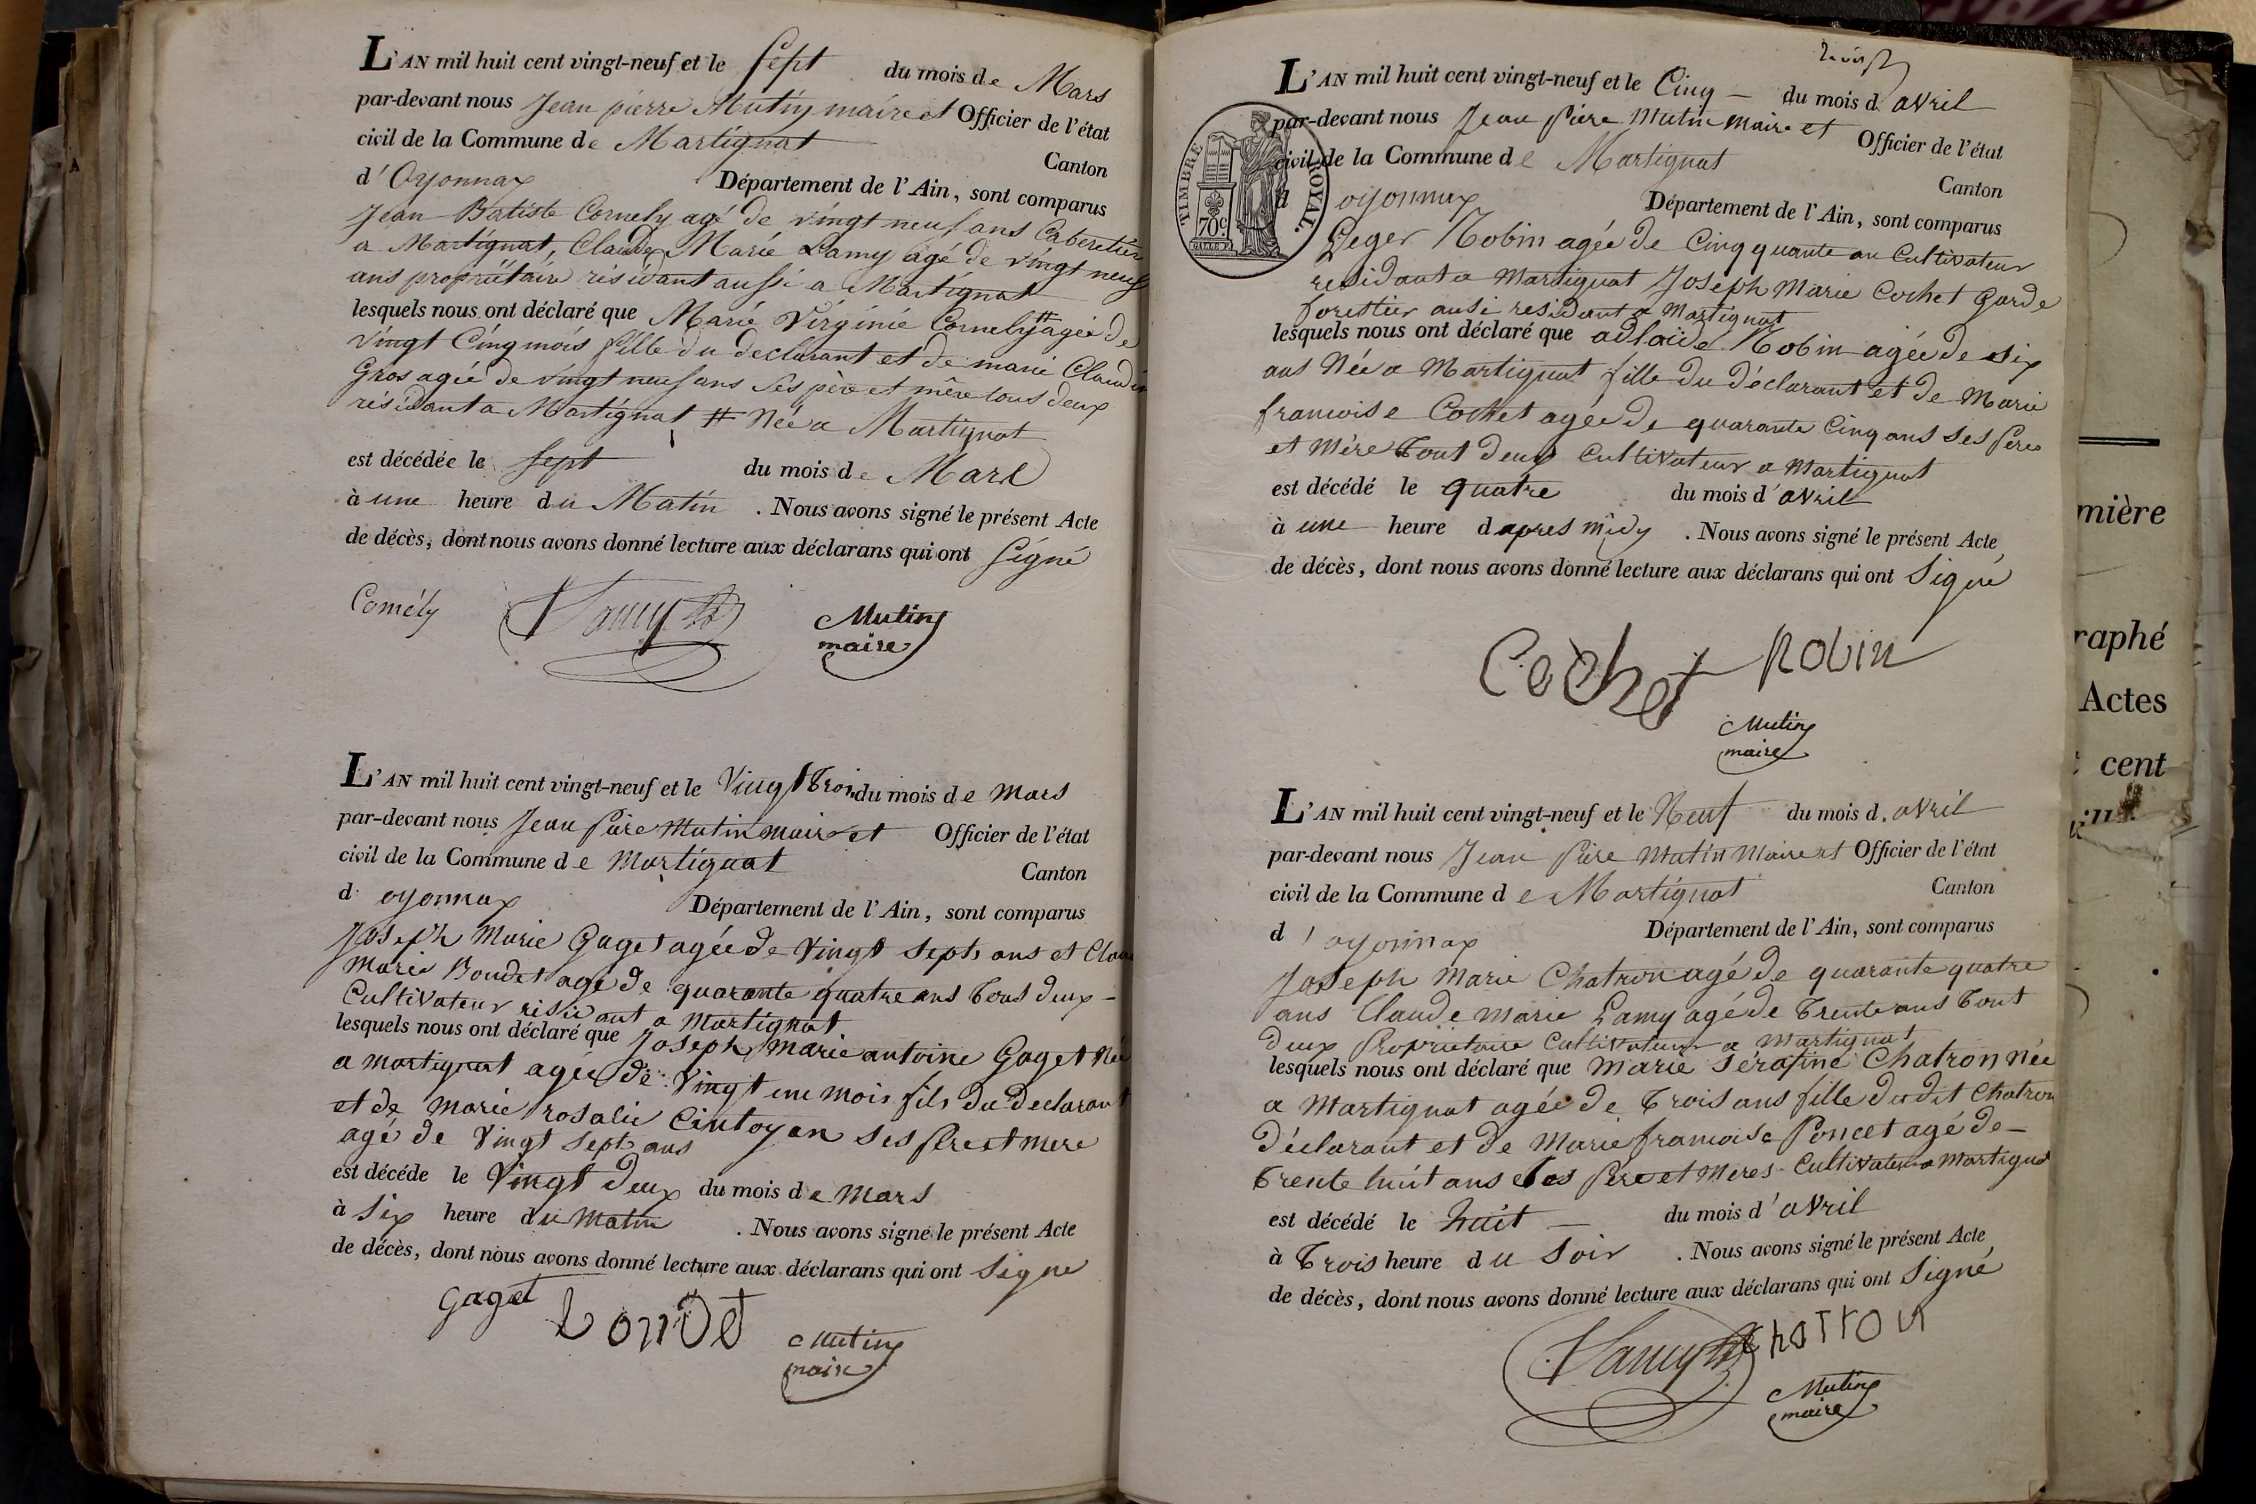 L'AN mil huit cent vingt-neuf et le Sept du mois de Mars
par-devant nous Jean pierre Mutin maire et Officier de l'état
civil de la Commune de Martignat Canton
d'Oyonnax Département de l'Ain, sont comparus
Jean Batiste Comely agé de vingt neuf ans Cabaretier
a Martignat, Claude Marie Lamy agé de vingt neuf
ans propriétaire résidant aussi a Martignat
lesquels nous ont déclaré que Marie Virginie Comely # agée de
Vingt Cinq mois fille du declarant et de marie Claudine
Gros agée de vingt neuf ans Ses père et mère tous deux
résidant a Martignat # Née a Martignat
est décédée le sept du mois de Mars
à une heure du Matin . Nous avons signé le présent Acte
de décès, dont nous avons donné lecture aux déclarans qui ont Signé
Comély Lamy Mutin
maire
L'AN mil huit cent vingt-neuf et le Vingt Trois du mois de mars
par-devant nous Jean Piere Mutin maire et Officier de l'état
civil de la Commune de Martignat Canton
d oyonnax Département de l'Ain, sont comparus
Joseph Marie Gaget agée de Vingt Sept ans et
Marie Boudet agé de quarante quatre ans Tous deux
Cultivateur residant a Martignat
lesquels nous ont déclaré que Joseph Marie antoine Gaget Née
a martignat agée de Vingt une mois fils du declarant
et de marie rosalie Cintoyan ses Pere et mere
agé de Vingt Sept ans
est décéde le Vingt Deux du mois de mars
à Six heure du Matin . Nous avons signé le présent Acte
de décès, dont nous avons donné lecture aux déclarans qui ont Signe
Gaget Bondet Mutin
maire
L'AN mil huit cent vingt-neuf et le Cinq du mois d avril
par-devant nous Jean Piere Mutin Maire et Officier de l'état
civil de la Commune de Martignat Canton
d oyonnax Département de l'Ain, sont comparus
TIMBRE ROYAL.
70c
Leger Robin agée de Cinqquante an Cultivateur
residant a Martignat Joseph Marie Cochet Garde
forestier ausi residant a Martignat
lesquels nous ont déclaré que adlaïde Robin agée de six
ans Née a Martignat fille du déclarant et de Marie
francoise Cochet agée de quarante Cinq ans ses Pere
et Mère Tout deux Cultivateur a Martignat
est décédé le quatre du mois d'avril
à une heure dapres midy . Nous avons signé le présent Acte
de décès, dont nous avons donné lecture aux déclarans qui ont Signé
Cochet Robin
Mutin
maire
L'AN mil huit cent vingt-neuf et le Neuf du mois d. avril
par-devant nous Jean Piere Mutin Maire et Officier de l'état
civil de la Commune de Martignat Canton
d'oyonnax Département de l'Ain, sont comparus
Joseph Marie Chatron agé de quarante quatre
ans Claude Marie Lamy agé de Trente ans Tout
deux Propriétaire Cultivateur a Martignat
lesquels nous ont déclaré que Marie Sérafine Chatron Née
a Martignat agée de Trois ans fille dudit Chatron
Déclarant et de Marie francoise Poncet agé de
Trente huit ans Ses Pere et Meres Cultivateur a Martignat
est décédé le huit du mois d'avril
à Trois heure du Soir . Nous avons signé le présent Acte
de décès, dont nous avons donné lecture aux déclarans qui ont Signé
Lamy Chattron
Mutin
maire
mière
raphé
Actes
cent